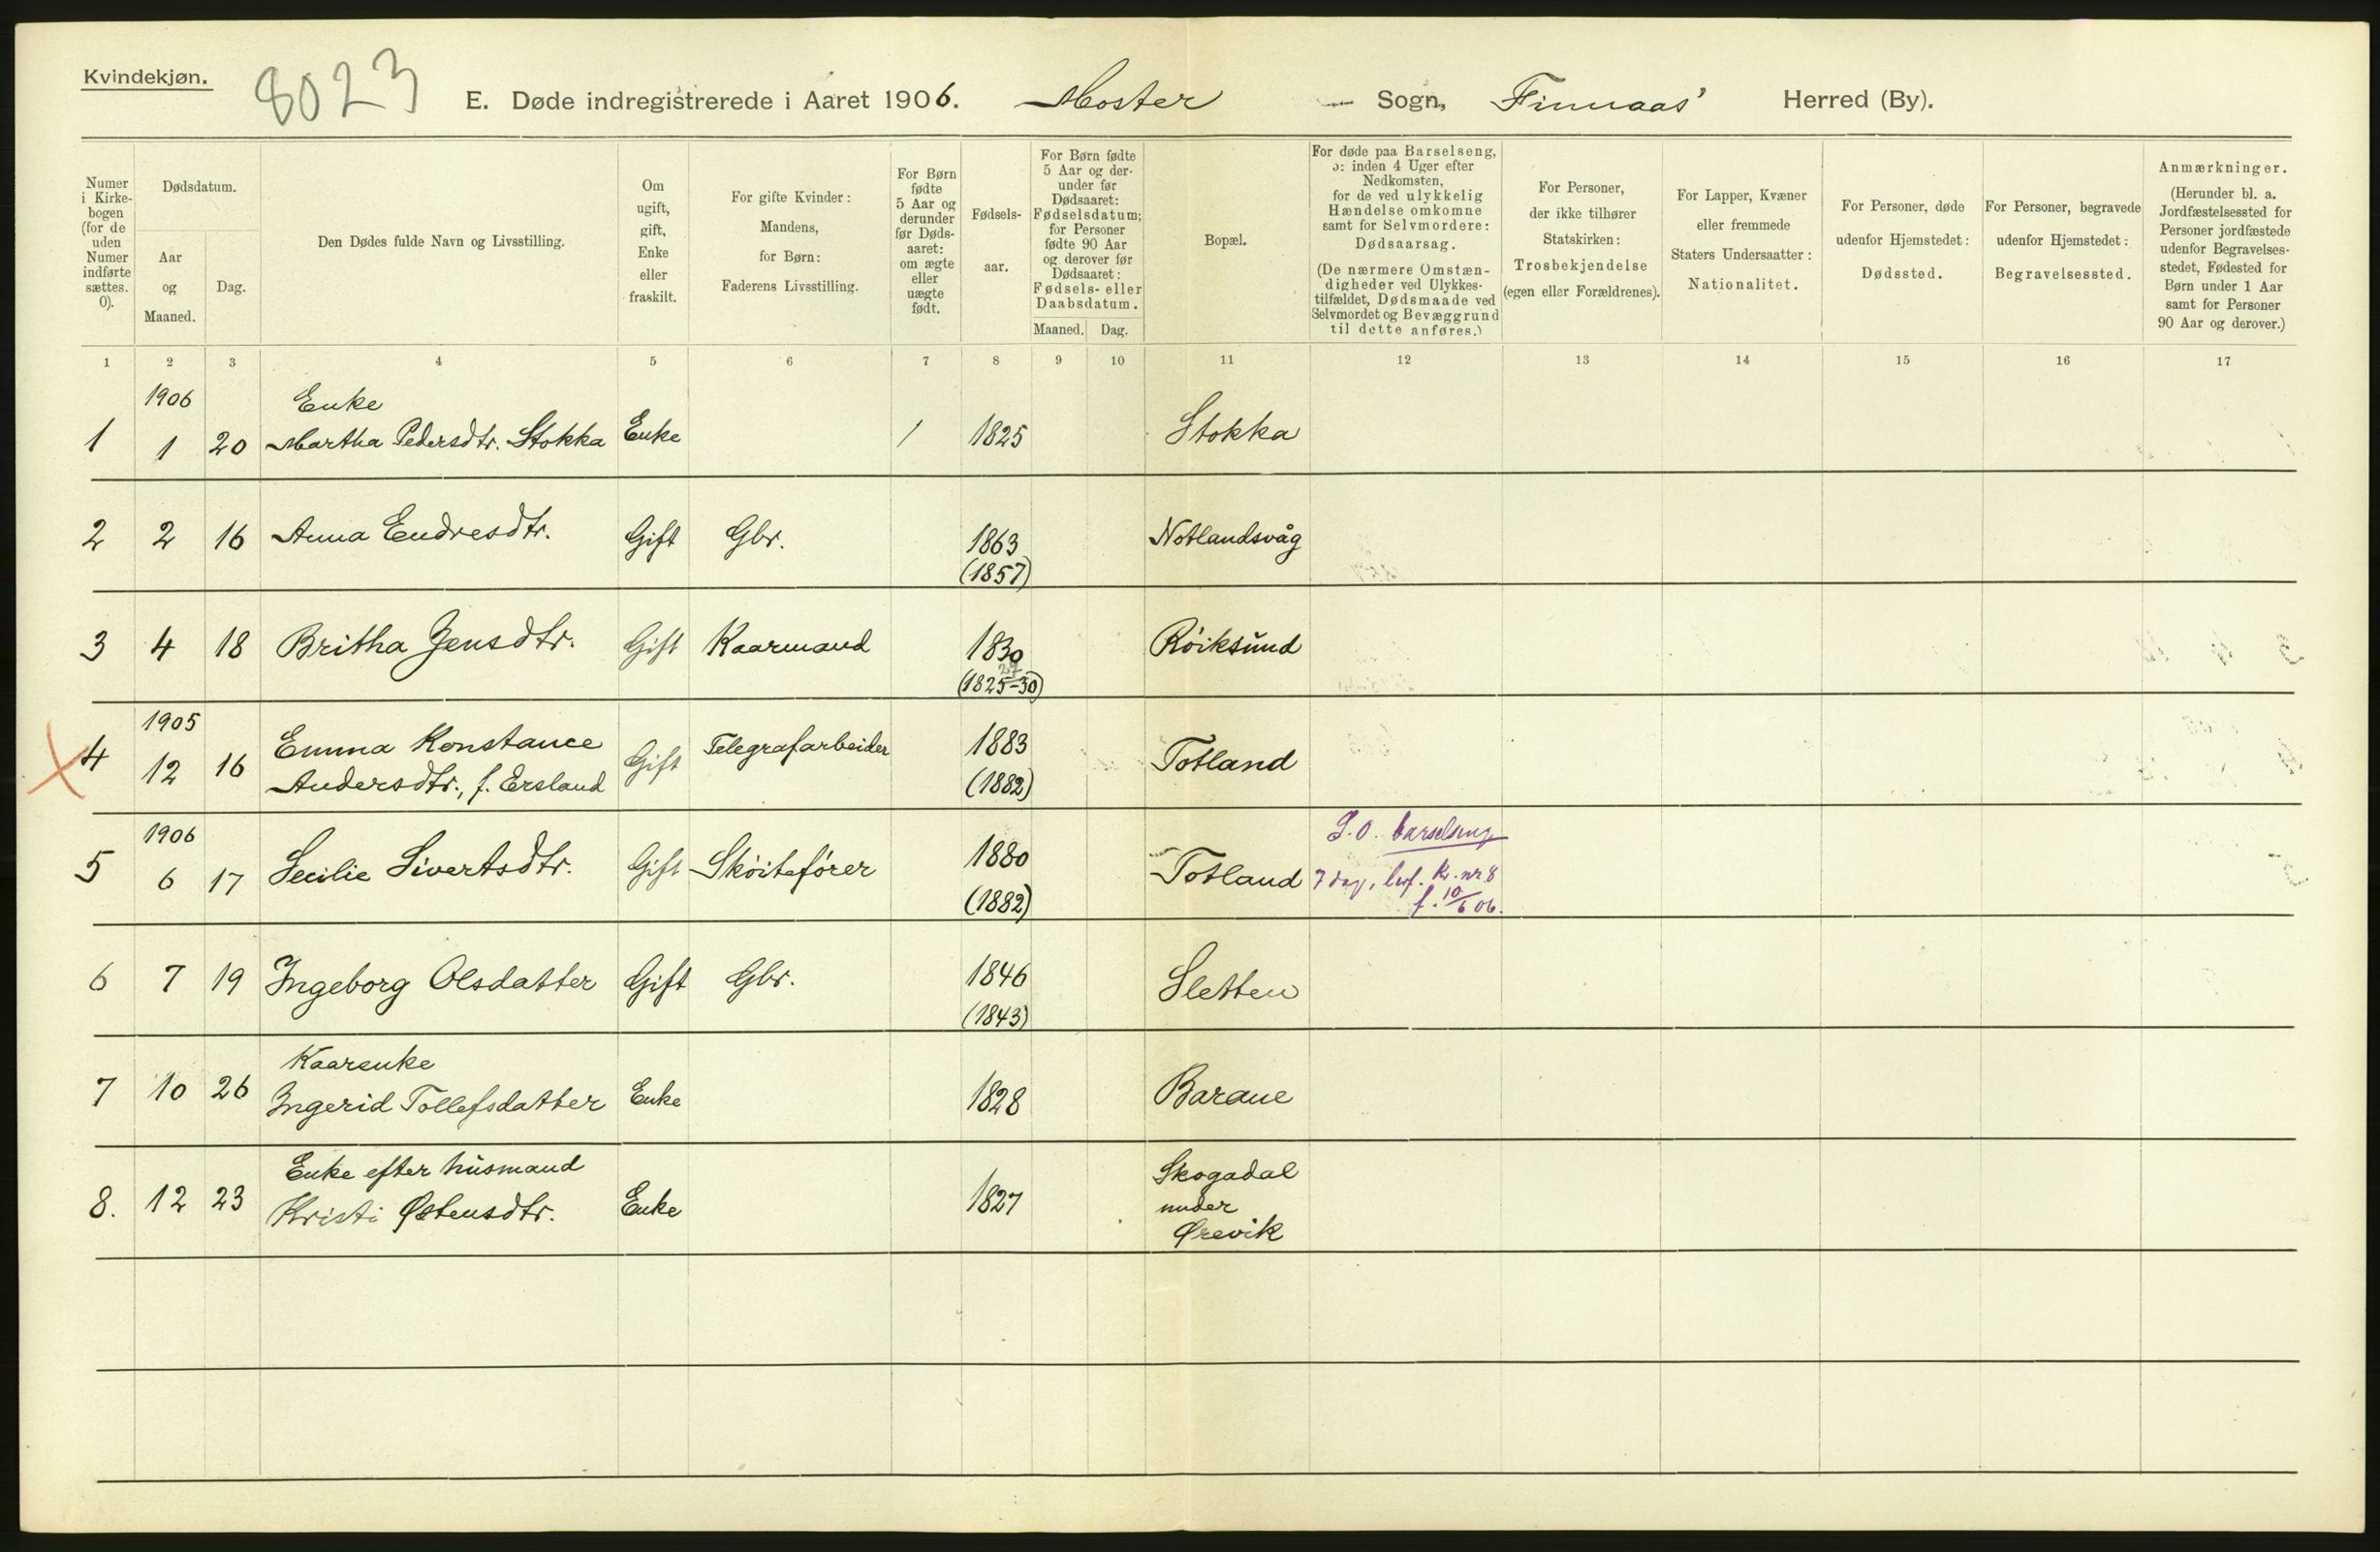 Kvindekjøn.
8023
E. Døde indregistrerede i Aaret 1906. Moster Sogn, Finnaas' Herred (By).
Numer i Kirkebogen (for de uden Numer indførte sættes. 0).
Dødsdatum.
Aar og Maaned.
Dag.
Den Dødes fulde Navn og Livsstilling.
Om ugift, gift, Enke eller fraskilt.
For gifte Kvinder: Mandens, for Børn: Faderens Livsstilling.
For Børn fødte 5 Aar og derunder før Dødsaaret: om ægte eller uægte født.
Fødselsaar.
For Børn fødte 5 Aar og derunder før Dødsaaret: Fødselsdatum; for Personer fødte 90 Aar og derover før Dødsaaret: Fødsels- eller Daabsdatum.
Maaned. Dag.
Bopæl.
For døde paa Barselseng, ɔ: inden 4 Uger efter Nedkomsten, for de ved ulykkelig Hændelse omkomne samt for Selvmordere: Dødsaarsag.
(De nærmere Omstændigheder ved Ulykkestilfældet, Dødsmaade ved Selvmordet og Bevæggrund til dette anføres.)
For Personer, der ikke tilhører Statskirken: Trosbekjendelse (egen eller Forældrenes).
For Lapper, Kvæner eller fremmede Staters Undersaatter: Nationalitet.
For Personer, døde udenfor Hjemstedet: Dødssted.
For Personer, begravede udenfor Hjemstedet: Begravelsessted.
Anmærkninger.
(Herunder bl. a. Jordfæstelsessted for Personer jordfæstede udenfor Begravelsesstedet, Fødested for Børn under 1 Aar samt for Personer 90 Aar og derover.)
1 2 3 4 5 6 7 8 9 10 11 12 13 14 15 16 17
1906 Enke
1 1 20 Martha Pedersdtr. Stokka Enke / 1825 Stokka
2 2 16 Anna Endresdtr. Gift Gbr. 1863 Notlandsvåg
(1857)
3 4 18 Britha Jensdtr. Gift Kaarmand 1830 Röiksund
(1825-30)
1905
X 4 12 16 Emma Konstance Gift Telegrafarbeider 1883 Totland
Andersdtr., f. Ersland (1882)
1906
5 6 17 Secilie Sivertsdtr. Gift Skøitefører 1880 Totland
(1882)
barselseng
7 dag, lev. K. nr 8
f. 10/6 06.
6 7 19 Ingeborg Olsdatter Gift Gbr. 1846 Sletten
(1843)
Kaarenke
7 10 26 Ingerid Tollefsdatter Enke 1828 Barane
Enke efter husmand
8. 12 23 Kristi Østensdtr. Enke 1827 Skogadal
under
Ørevik